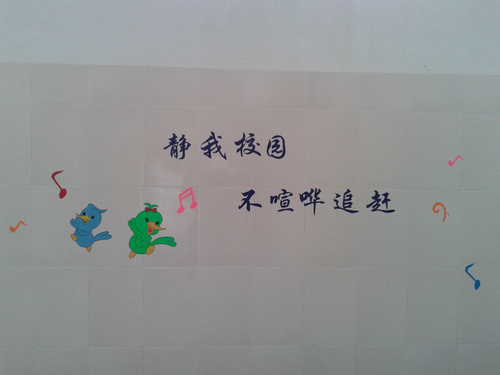 静我校园
不喧哗追赶